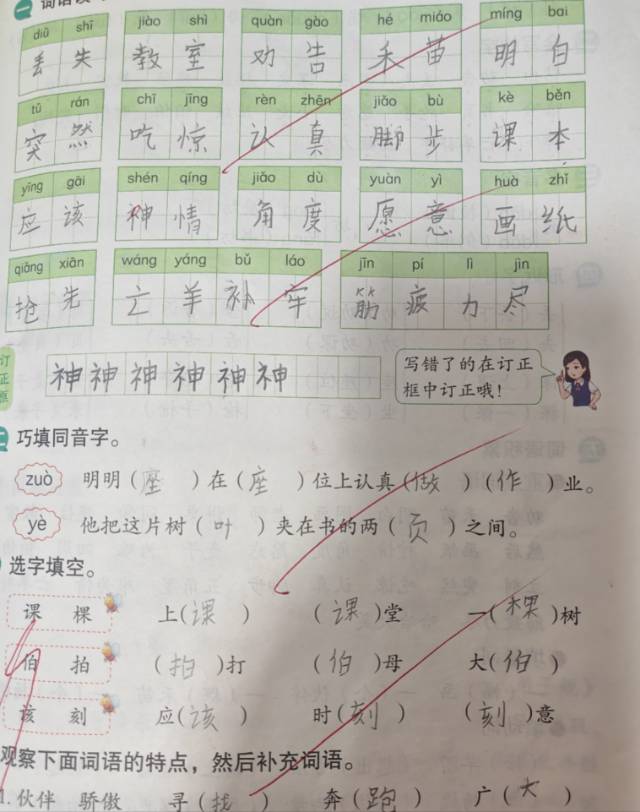 diū shī jiào shì quàn gào hé miáo míng bai
丢 失 教 室 劝 告 禾 苗 明 白
tū rán chī jīng rèn zhēn jiǎo bù kè běn
突 然 吃 惊 认 真 脚 步 课 本
yīng gāi shén qíng jiǎo dù yuàn yì huà zhǐ
应 该 神 情 角 度 愿 意 画 纸
qiǎng xiān wáng yáng bǔ láo jīn pí lì jìn
抢 先 亡 羊 补 牢 筋 疲 力 尽
订正框 神 神 神 神 神 神 写错了的在订正
框中订正哦!
巧填同音字。
zuò 明明(座)在(座)位上认真(做)(作)业。
yè 他把这片树(叶)夹在书的两(页)之间。
选字填空。
课 棵 上(课) (课)堂 一(棵)树
伯 拍 (拍)打 (伯)母 大(伯)
该 刻 应(该) 时(刻) (刻)意
观察下面词语的特点,然后补充词语。
1.伙伴 骄傲 寻(找) 奔(跑) 广(大)